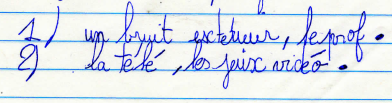 1) un bruit extérieur, le prof.
2) la télé, les jeux vidéo.